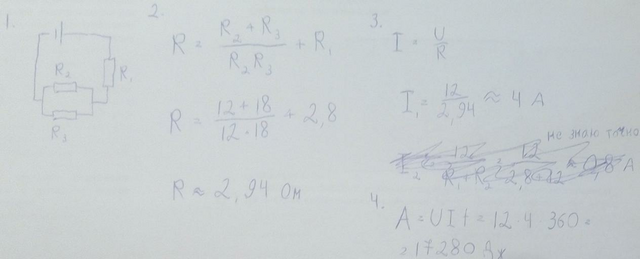 1.
R₂
R₁
R₃
2.
R = (R₂ + R₃)/(R₂R₃) + R₁
R = (12 + 18)/(12 · 18) + 2,8
R ≈ 2,94 Ом
3.
I = U/R
I₁ = 12/2,94 ≈ 4 А
не знаю точно
4.
A = UIt = 12 · 4 · 360 =
= 17280 Дж